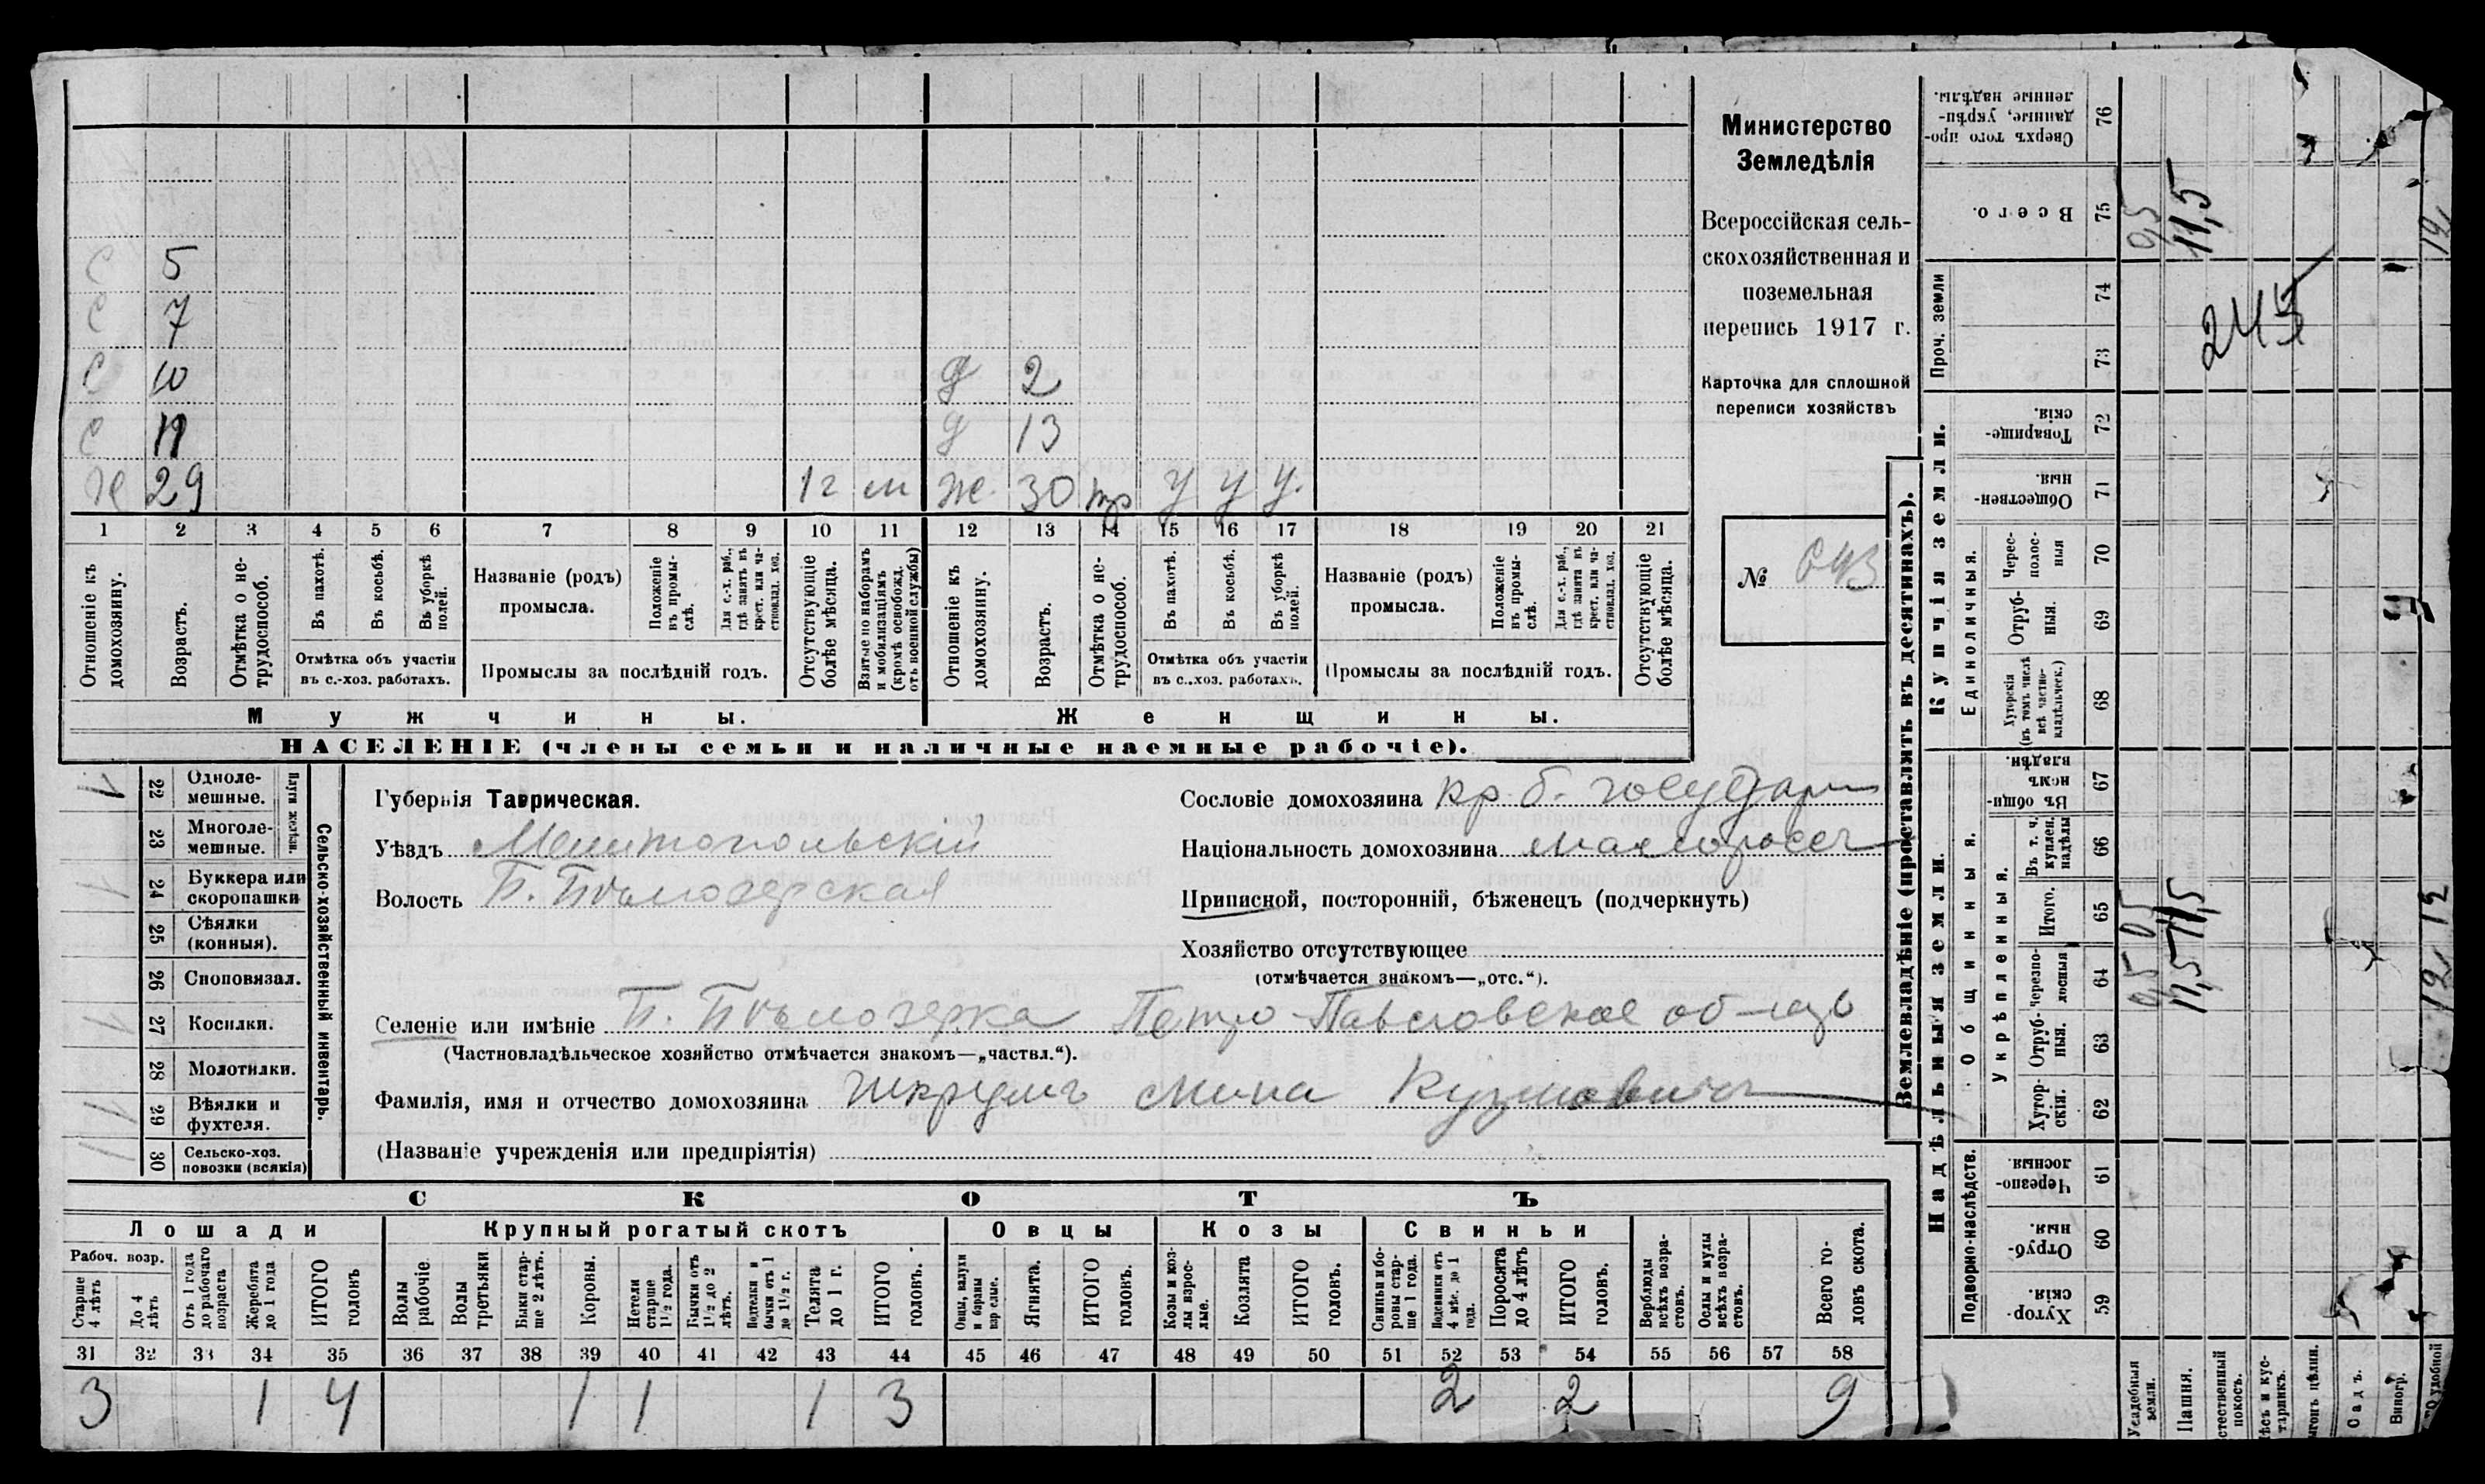 Министерство
Земледѣлія
Всероссійская сель-
скохозяйственная и
поземельная
перепись 1917 г.
Карточка для сплошной
переписи хозяйствъ
№ 643
С 5
С 7
С 10 д 2
С 11 д 13
Х 29 1 г м ж. 30 тр у у у.
1 2 3 4 5 6 7 8 9 10 11 12 13 14 15 16 17 18 19 20 21
Отношеніе къ домохозяину.
Возрастъ.
Отмѣтка о не-трудоспособ.
Въ пахотѣ.
Въ косьбѣ.
Въ уборкѣ полей.
Отмѣтка объ участіи
въ с.-хоз. работахъ.
Названіе (родъ)
промысла.
Положеніе въ промы-слѣ.
Для с.-х. раб., гдѣ занятъ въ крест. или ча-стновлад. хоз.
Промыслы за послѣдній годъ.
Отсутствующіе болѣе мѣсяца.
Взятые по наборамъ и мобилизаціямъ (кромѣ освобожд. отъ военной службы)
Отношеніе къ домохозяину.
Возрастъ.
Отмѣтка о не-трудоспособ.
Въ пахотѣ.
Въ косьбѣ.
Въ уборкѣ полей.
Отмѣтка объ участіи
въ с.-хоз. работахъ.
Названіе (родъ)
промысла.
Положеніе въ промы-слѣ.
Для с.-х. раб., гдѣ занята въ крест. или ча-стновлад. хоз.
Промыслы за послѣдній годъ.
Отсутствующіе болѣе мѣсяца.
Мужчины. Женщины.
НАСЕЛЕНІЕ (члены семьи и наличные наемные рабочіе).
Сельско-хозяйственный инвентарь.
Плуги желѣзн.
22 Одноле-мешные.
23 Многоле-мешные.
24 Буккера или скоропашки
25 Сѣялки (конныя).
26 Сноповязал.
27 Косилки.
28 Молотилки.
29 Вѣялки и фухтеля.
30 Сельско-хоз. повозки (всякія)
Губернія Таврическая.
Уѣздъ Мелитопольскій
Волость Б. Бѣлозерская
Сословіе домохозяина кр. б. государ
Національность домохозяина малоросс
Приписной, посторонній, бѣженецъ (подчеркнуть)
Хозяйство отсутствующее
(отмѣчается знакомъ—„отс.“).
Селеніе или имѣніе Б. Бѣлозерка Петро-Павловское об-щво
(Частновладѣльческое хозяйство отмѣчается знакомъ—„частвл.“).
Фамилія, имя и отчество домохозяина Мина Кузмовичъ
(Названіе учрежденія или предпріятія)
СКОТЪ
Лошади Крупный рогатый скотъ Овцы Козы Свиньи
Рабоч. возр.
Старше 4 лѣтъ
До 4 лѣтъ
Отъ 1 года до рабочаго возраста
Жеребята до 1 года
ИТОГО головъ
Волы рабочіе.
Волы третьяки
Быки стар-ше 2 лѣтъ.
Коровы.
Нетели старше 1½ года.
Бычки отъ 1½ до 2 лѣтъ.
Подтелки и бычки отъ 1 до 1½ г.
Телята до 1 г.
ИТОГО головъ.
Овцы, валухи и бараны взрослые.
Ягнята.
ИТОГО головъ.
Козы и коз-лы взрос-лые.
Козлята
ИТОГО головъ.
Свиньи и бо-ровы стар-ше 1 года.
Подсвинки отъ 4 мѣс. до 1 года.
Поросята до 4 лѣтъ
ИТОГО головъ.
Верблюды всѣхъ возра-стовъ.
Ослы и мулы всѣхъ возра-стовъ.
Всего го-ловъ скота.
31 32 33 34 35 36 37 38 39 40 41 42 43 44 45 46 47 48 49 50 51 52 53 54 55 56 57 58
3 1 4 1 1 1 3 2 2 9
Землевладѣніе (проставлять въ десятинахъ).
Купчія земли.
Надѣльныя земли.
Сверхъ того про-данные, укрѣп-ленные надѣлы. 76
Всего. 75 9,5 11,5
Проч. земли 74 73
245
Товарище-скія. 72
Обществен-ныя. 71
Единоличныя.
Черес-полос-ныя 70
Отруб-ныя. 69
Хуторскія (въ томъ числѣ всѣ частно-владѣльческ.) 68
Общинныя.
Въ общи-номъ владѣн. 67
Укрѣпленныя.
Въ т. ч. куплен. надѣлы 66
Итого. 65 11,5
Черезпо-лосныя 64 11,5
Отруб-ныя. 63
Хутор-скія. 62
Подворно-наслѣдств.
Черезпо-лосныя. 61
Отруб-ныя. 60
Хутор-скія. 59
Усадебныя земли.
Пашня.
Садъ.
Виногр.
удобной
12